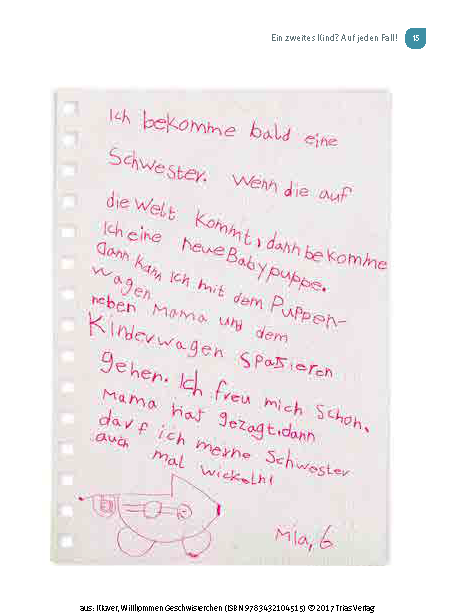 Ein zweites Kind? Auf jeden Fall!
15
Ich bekomme bald eine
Schwester. Wenn die auf
die Welt kommt, dann bekomme
Ich eine neue Babypuppe.
dann kann ich mit dem Puppen-
wagen
neben Mama und dem
Kinderwagen spaßieren
gehen. Ich freu mich schon.
Mama hat gezagt, dann
darf ich meine Schwester
auch mal wickeln!
Mia, 6
aus: Klüver, Willkommen Geschwisterchen (ISBN 9783432104515) © 2017 Trias Verlag